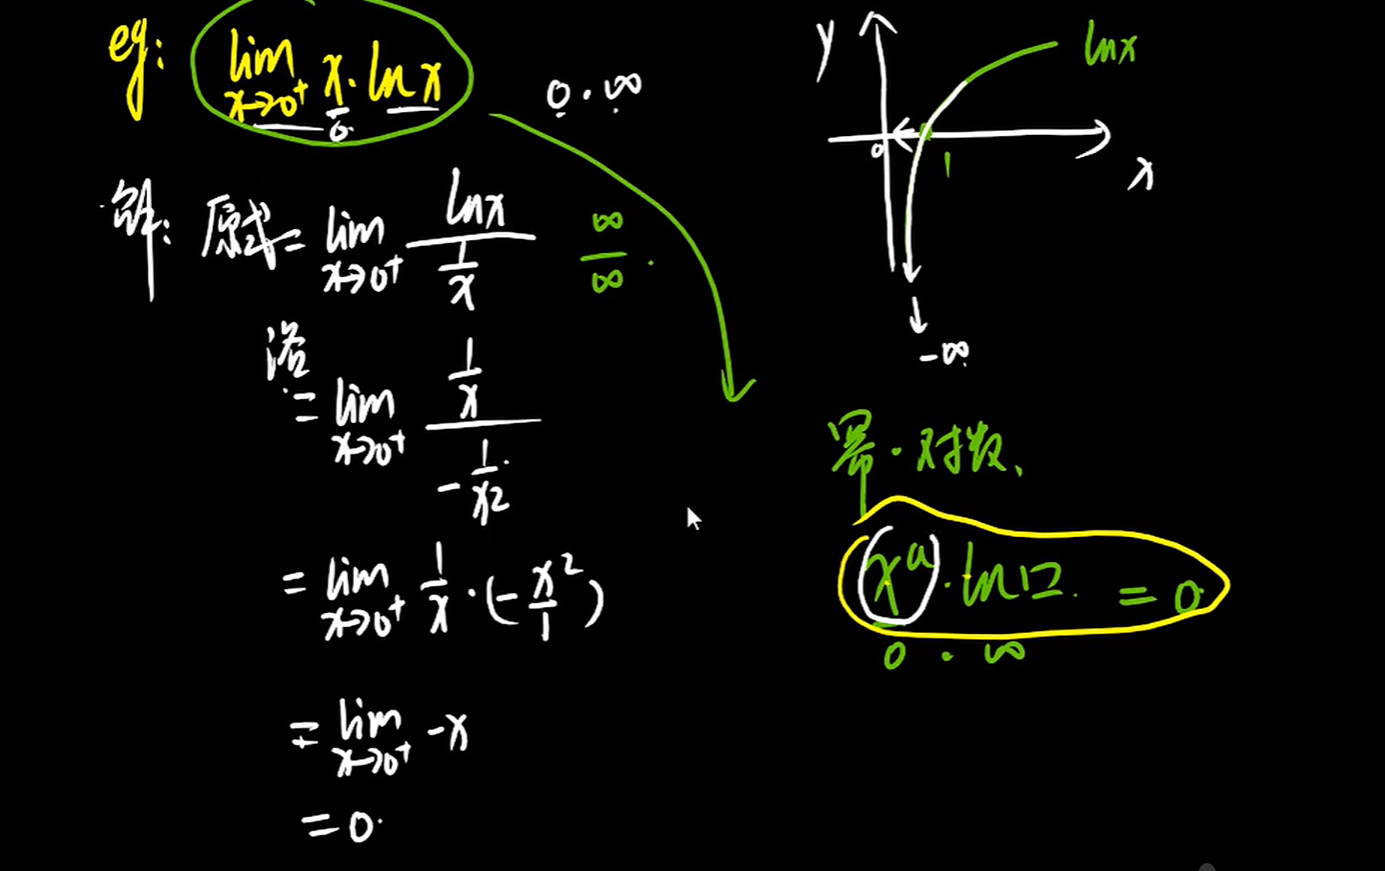 eg: lim x→0⁺ x·lnx
0·∞
解: 原式= lim x→0⁺ lnx / (1/x)
∞/∞.
洛
= lim x→0⁺ (1/x) / (-1/x²)
= lim x→0⁺ 1/x·(-x²/1)
= lim x→0⁺ -x
=0.
y
lnx
0
1
x
-∞
幂·对数、
x^a·ln口. =0.
0·∞